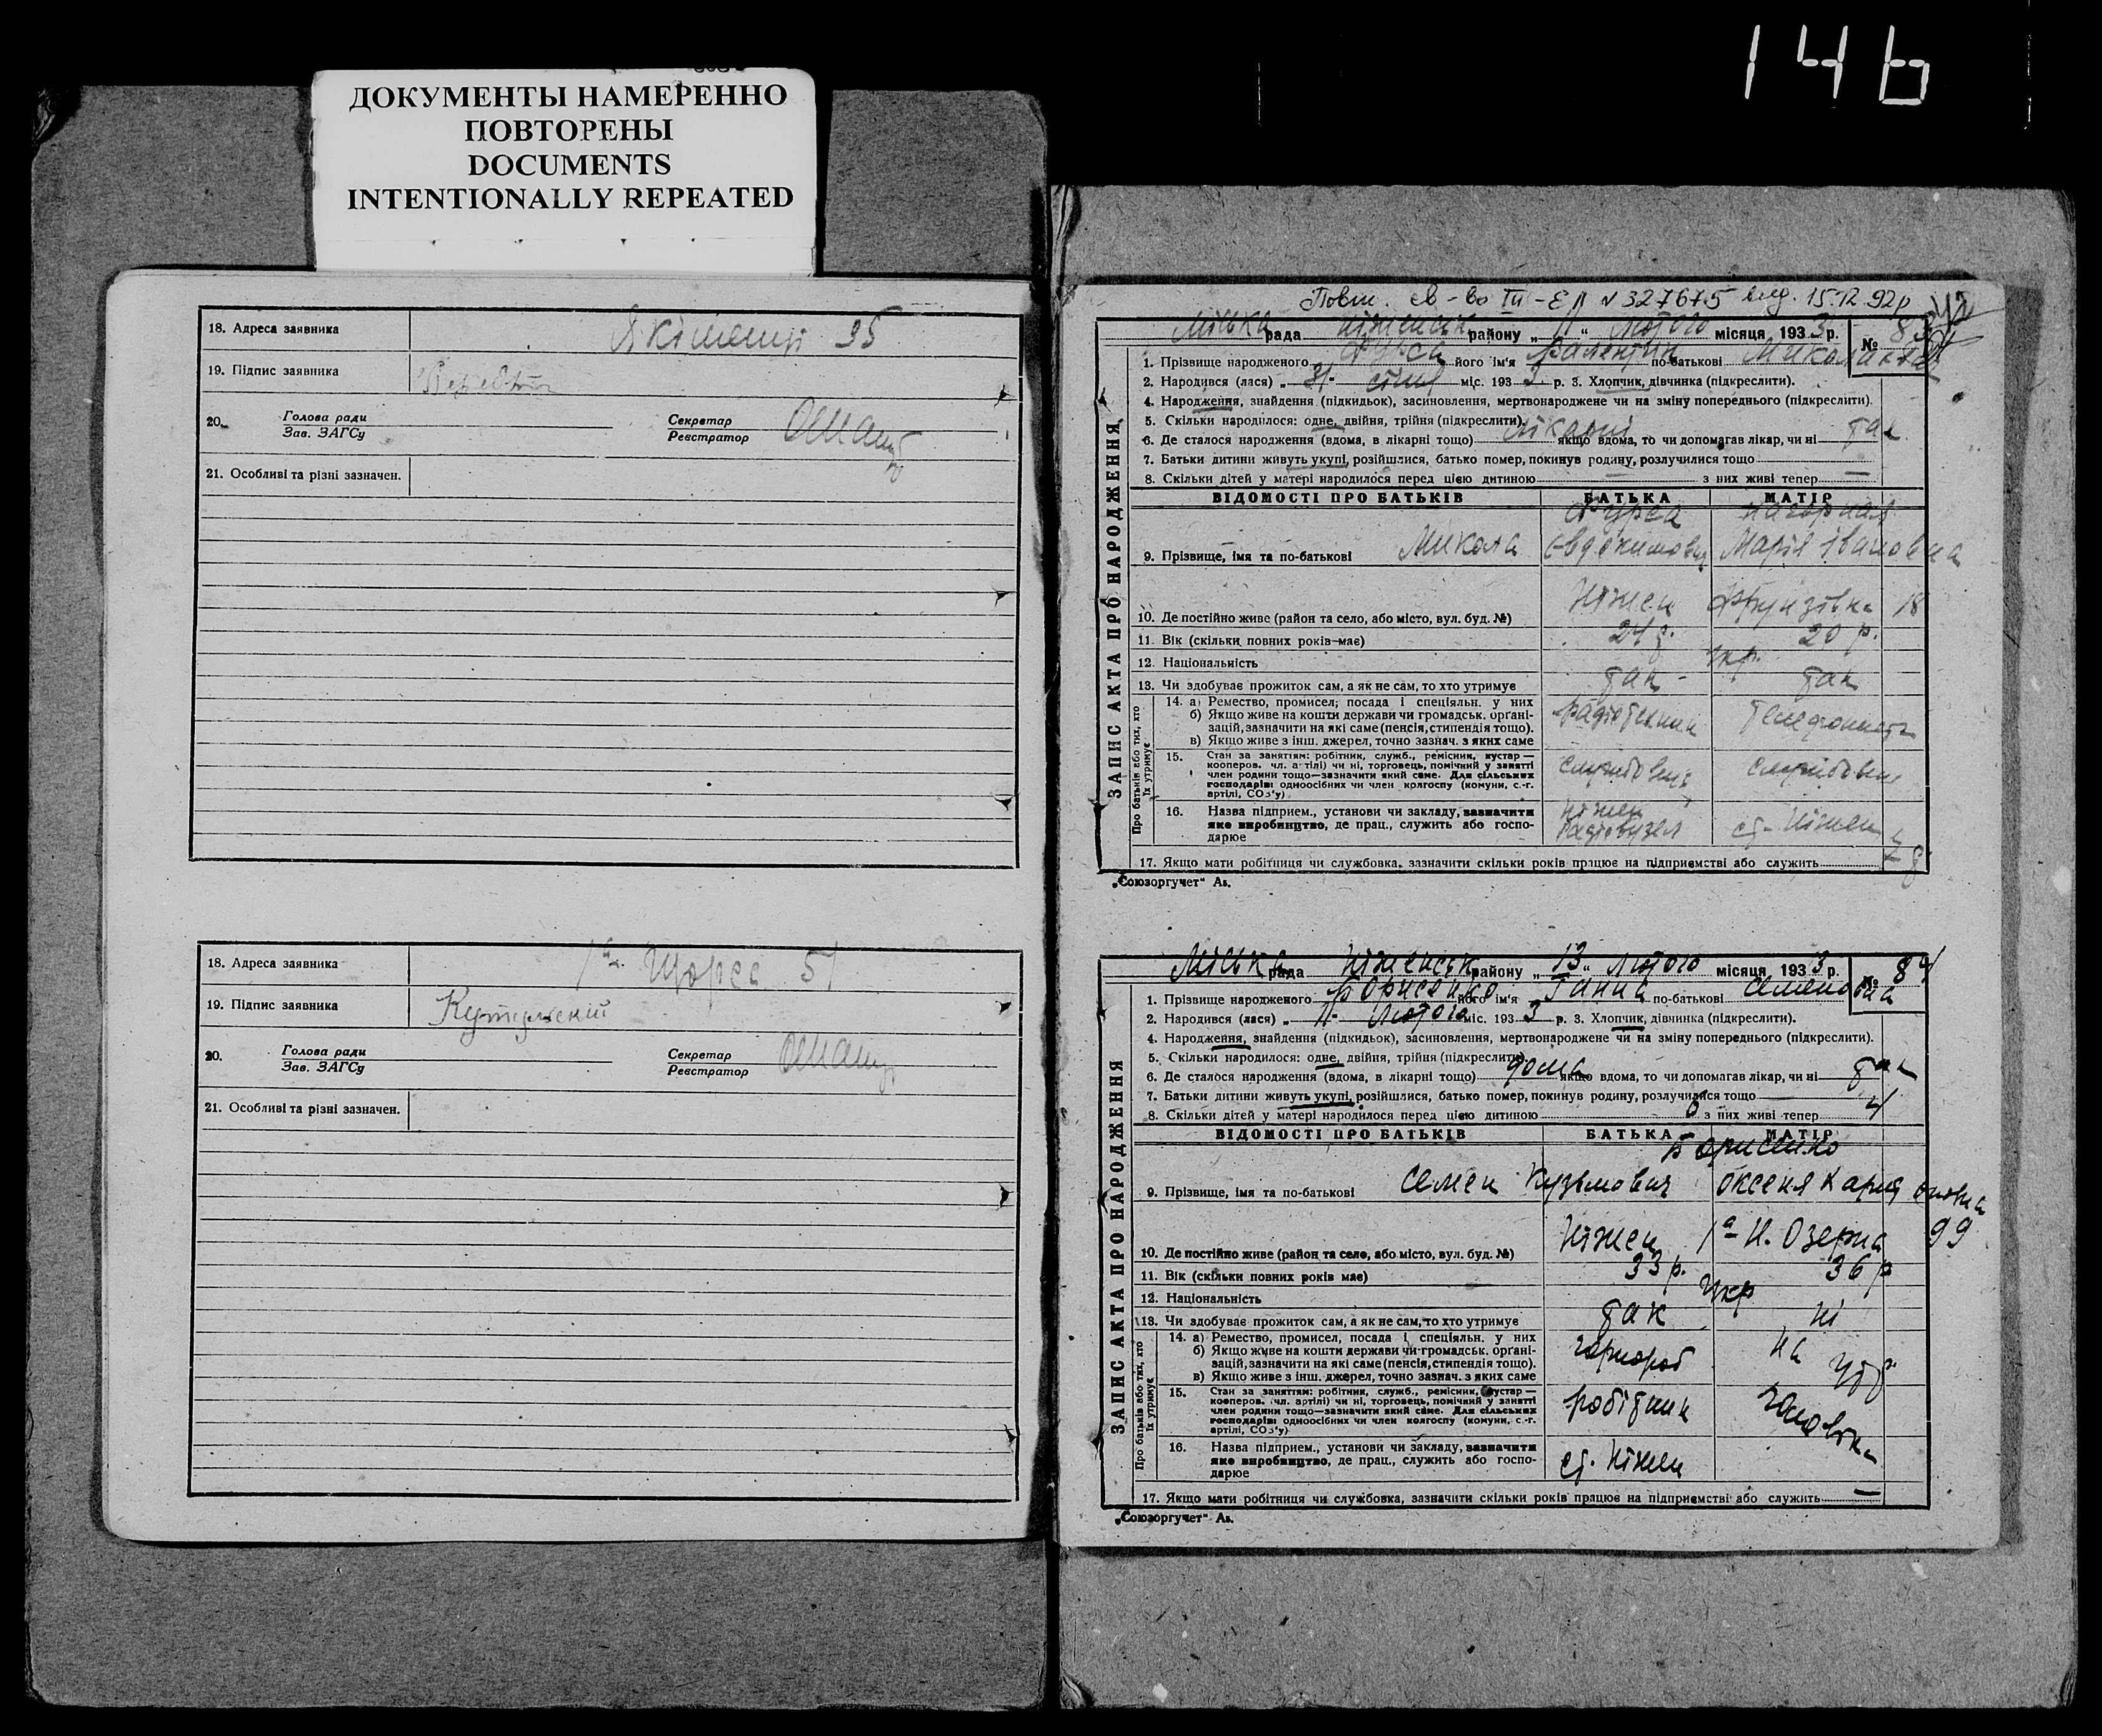 146
ДОКУМЕНТЫ НАМЕРЕННО
ПОВТОРЕНЫ
DOCUMENTS
INTENTIONALLY REPEATED
18. Адреса заявника 95
19. Підпис заявника
20. Голова ради Секретар
Зав. ЗАГСу Реєстратор
21. Особливі та різні зазначен.
18. Адреса заявника Щорса 51
19. Підпис заявника
20. Голова ради Секретар
Зав. ЗАГСу Реєстратор
21. Особливі та різні зазначен.
Повт. св-во III-ЕЛ № 327675 вид. 15.12.92р
ЗАПИС АКТА ПРО НАРОДЖЕННЯ
Міська рада Ніженськ району „11“ Лютого місяця 1933 р. № 83
1. Прізвище народженого Фурса його ім'я Валентин по-батькові Миколаєвич
2. Народився (лася) „31“ січня міс. 1933 р. 3. Хлопчик, дівчинка (підкреслити).
4. Народження, знайдення (підкидьок), засиновлення, мертвонароджене чи на зміну попереднього (підкреслити).
5. Скільки народилося: одне, двійня, трійня (підкреслити).
6. Де сталося народження (вдома, в лікарні тощо) лікарні якщо вдома, то чи допомагав лікар, чи ні так
7. Батьки дитини живуть укупі, розійшлися, батько помер, покинув родину, розлучилися тощо
8. Скільки дітей у матері народилося перед цією дитиною — з них живі тепер —
ВІДОМОСТІ ПРО БАТЬКІВ БАТЬКА МАТІР
Фурса Нагорная
9. Прізвище, імя та по-батькові Микола Евдокимович Марія Івановна
10. Де постійно живе (район та село, або місто, вул. буд. №) Ніжен Фрунзівка 18
11. Вік (скільки повних років має) 24 р. 20 р.
12. Національність Укр.
13. Чи здобуває прожиток сам, а як не сам, то хто утримує так - так
Про батьків або тих, хто їх утримує
14. а) Ремество, промисел, посада і спеціяльн. у них
б) Якщо живе на кошти держави чи громадськ. органі-
зацій, зазначити на які саме (пенсія, стипендія тощо).
в) Якщо живе з інш. джерел, точно зазнач. з яких саме
радіотехник телефоністка
15. Стан за заняттям: робітник, служб., ремісник, кустар —
кооперов. чл. артілі) чи ні, торговець, помічний у занятті
член родини тощо—зазначити який саме. Для сільських
господарів: одноосібних чи член колгоспу (комуни, с.-г.
артілі, СОЗ'у)
службовець службовец
16. Назва підприєм., установи чи закладу, зазначити
яке виробництво, де прац., служить або госпо-
дарює
Ніжен
Радіовузел ст. Ніжен
17. Якщо мати робітниця чи службовка, зазначити скільки років працює на підприємстві або служить
„Союзоргучет“ Ав.
ЗАПИС АКТА ПРО НАРОДЖЕННЯ
Міська рада Ніженськ району „13“ лютого місяця 1933 р. № 84
1. Прізвище народженого Борисенко його ім'я Ганна по-батькові Семеновна
2. Народився (лася) „11“ Лютого міс. 1933 р. 3. Хлопчик, дівчинка (підкреслити).
4. Народження, знайдення (підкидьок), засиновлення, мертвонароджене чи на зміну попереднього (підкреслити).
5. Скільки народилося: одне, двійня, трійня (підкреслити)
6. Де сталося народження (вдома, в лікарні тощо) дома якщо вдома, то чи допомагав лікар, чи ні так
7. Батьки дитини живуть укупі, розійшлися, батько помер, покинув родину, розлучилися тощо
8. Скільки дітей у матері народилося перед цією дитиною 6 з них живі тепер 4
ВІДОМОСТІ ПРО БАТЬКІВ БАТЬКА МАТІР
Борисенко
9. Прізвище, імя та по-батькові Семен Кузьмович Оксеня
10. Де постійно живе (район та село, або місто, вул. буд. №) Ніжен Н. Озерна 99
11. Вік (скільки повних років має) 33 р. 36 р
12. Національність Укр
13. Чи здобуває прожиток сам, а як не сам, то хто утримує так ні
Про батьків або тих, хто їх утримує
14. а) Ремество, промисел, посада і спеціяльн. у них
б) Якщо живе на кошти держави чи громадськ. органі-
зацій, зазначити на які саме (пенсія, стипендія тощо).
в) Якщо живе з інш. джерел, точно зазнач. з яких саме
чорнороб на утр
15. Стан за заняттям: робітник, служб., ремісник, кустар —
кооперов. чл. артілі) чи ні, торговець, помічний у занятті
член родини тощо—зазначити який саме. Для сільських
господарів: одноосібних чи член колгоспу (комуни, с.-г.
артілі, СОЗ'у)
робітник
16. Назва підприєм., установи чи закладу, зазначити
яке виробництво, де прац., служить або госпо-
дарює
ст. Ніжен
17. Якщо мати робітниця чи службовка, зазначити скільки років працює на підприємстві або служить —
„Союзоргучет“ Ав.